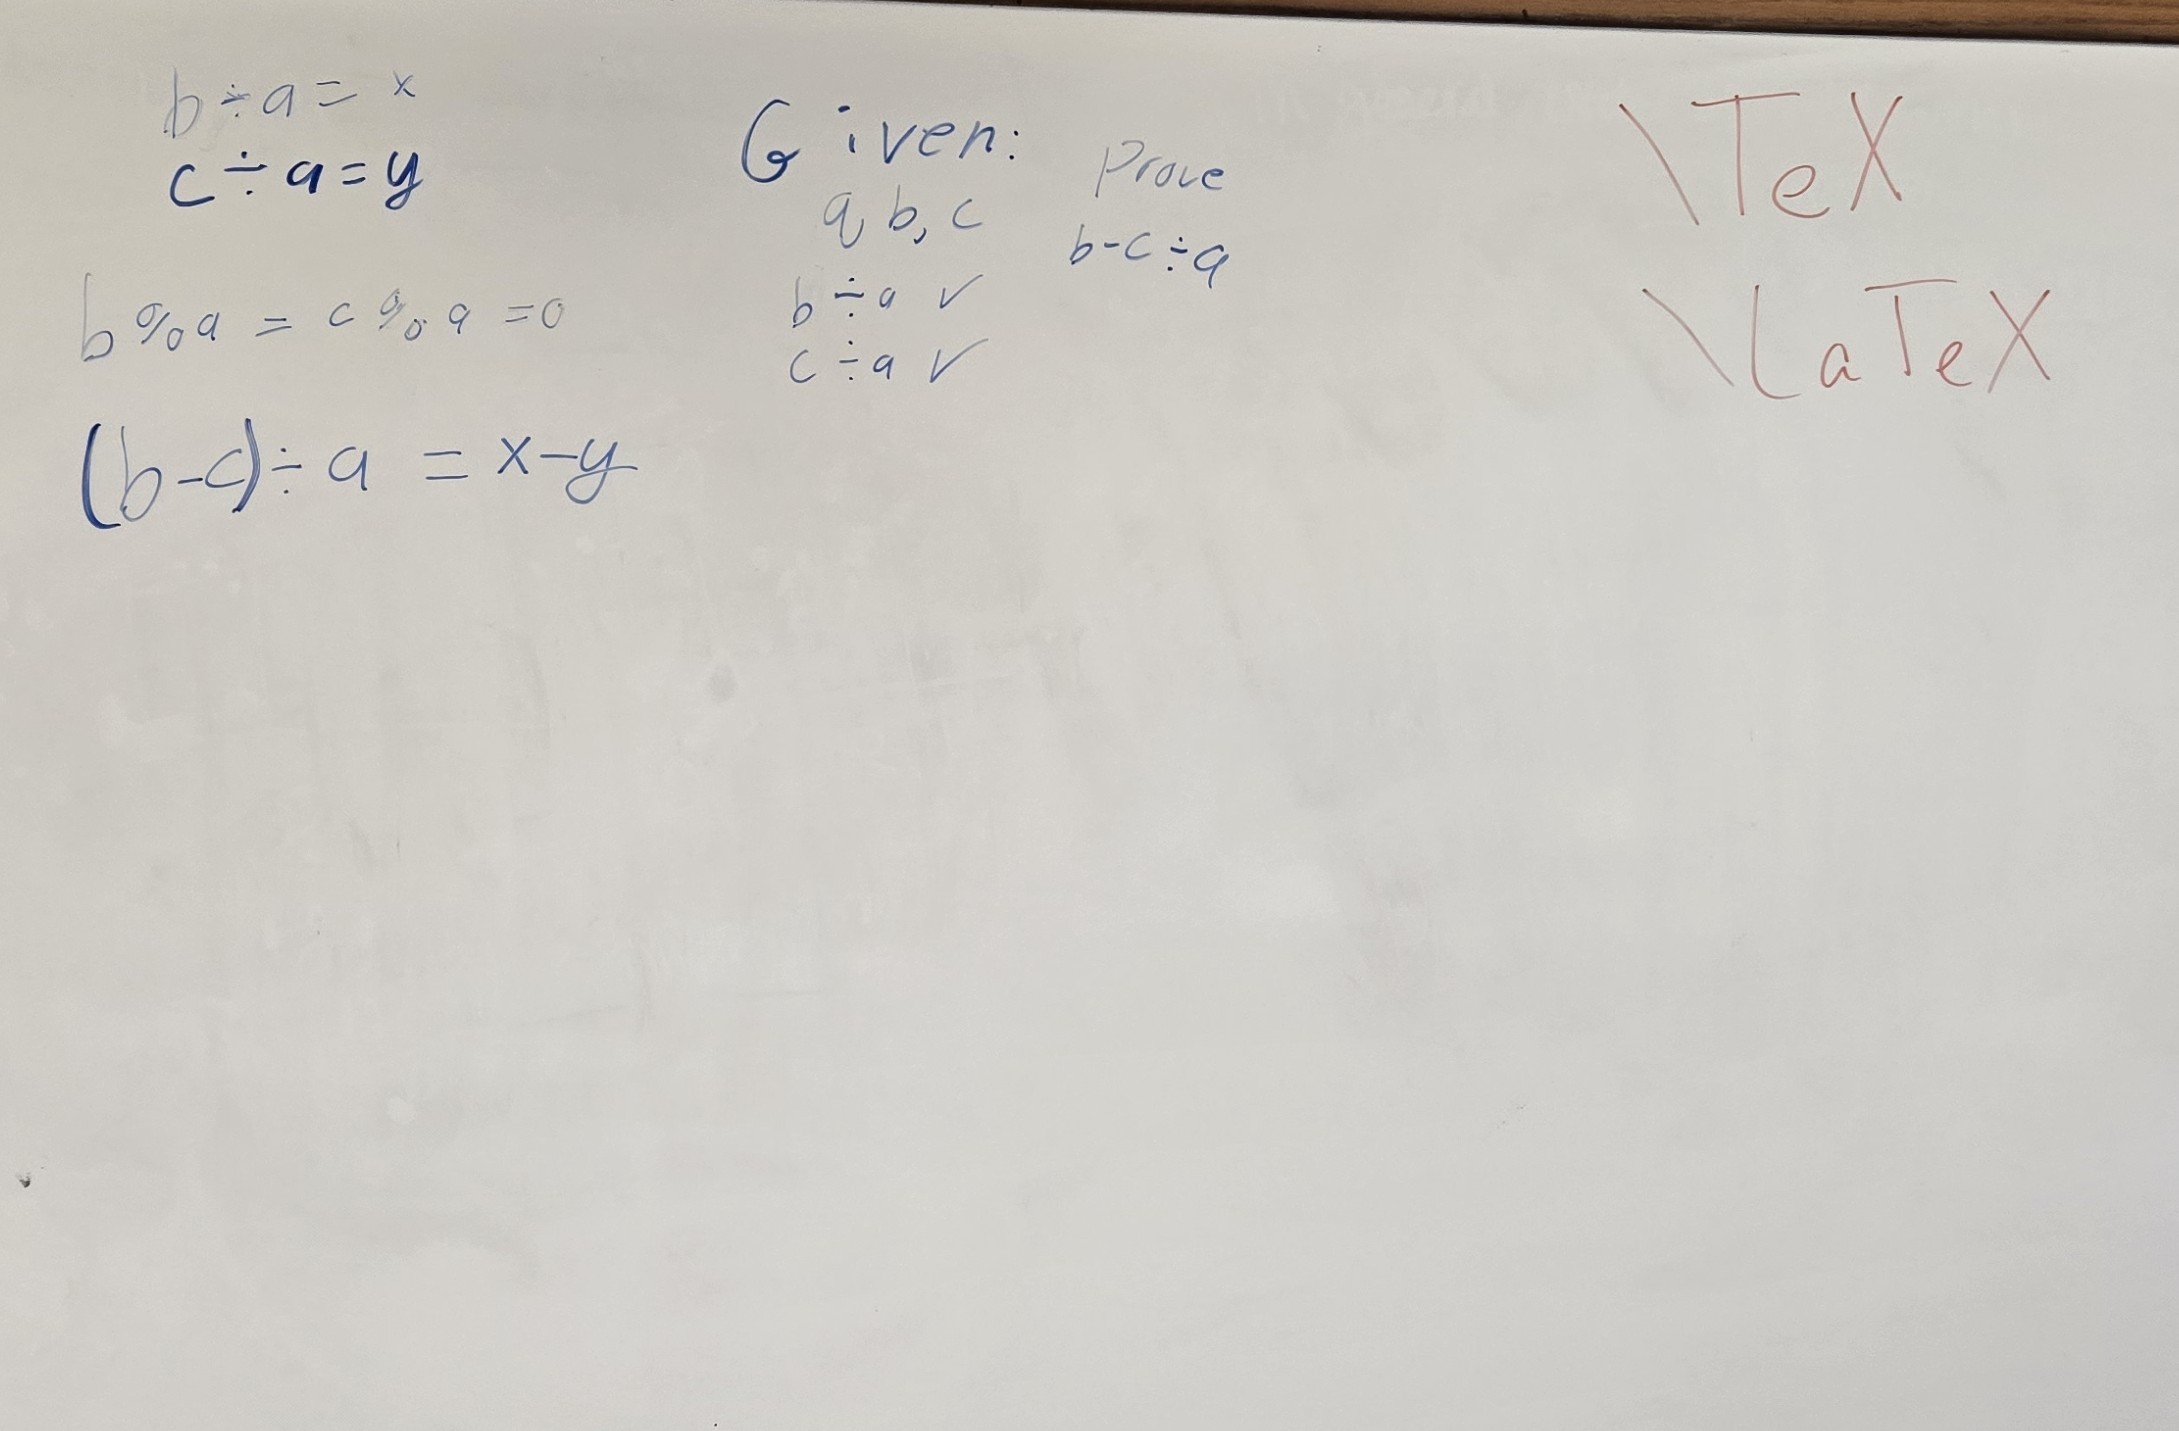 b÷a = x
c÷a = y
b%a = c%a = 0
(b-c)÷a = x-y
Given:
a, b, c
b÷a ✓
c÷a ✓
Prove
b-c÷a
\TeX
\LaTeX